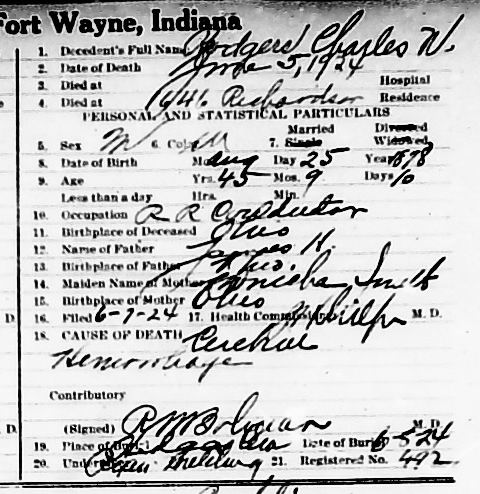 Fort Wayne, Indiana
1. Decedent's Full Name Rodgers Charles W.
2. Date of Death June 5, 1924
3. Died at Hospital
4. Died at 1641 Richardson Residence
PERSONAL AND STATISTICAL PARTICULARS
Married Divorced
5. Sex M 6. Color W 7. Single Widowed
8. Date of Birth Mo. Aug Day 25 Year 1878
9. Age Yrs. 45 Mos. 9 Days 10
Less than a day Hrs. Min.
10. Occupation R R Conductor
11. Birthplace of Deceased Ohio
12. Name of Father James H.
13. Birthplace of Father Ohio
14. Maiden Name of Mother Smith
15. Birthplace of Mother Ohio
D. 16. Filed 6-7-24 17. Health Commissioner M. D.
18. CAUSE OF DEATH Cerebral
Hemorrhage
Contributory
D. (Signed) R M Bolman M. D.
19. Place of Burial Date of Burial 6-8-24
20. Undertaker 21. Registered No. 492